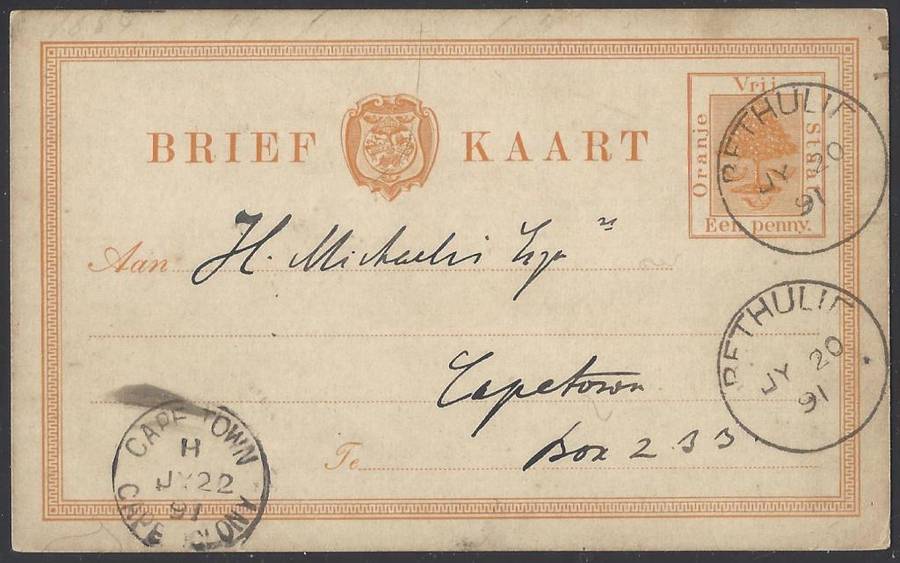 BRIEF KAART
Vrij
Oranje
Staat
Een penny.
BETHULIE
JY 20
91
Aan H. Michaelis Esqre
BETHULIE
JY 20
91
Capetown
Te Box 233
CAPE TOWN
H
JY 22
91
CAPE COLONY